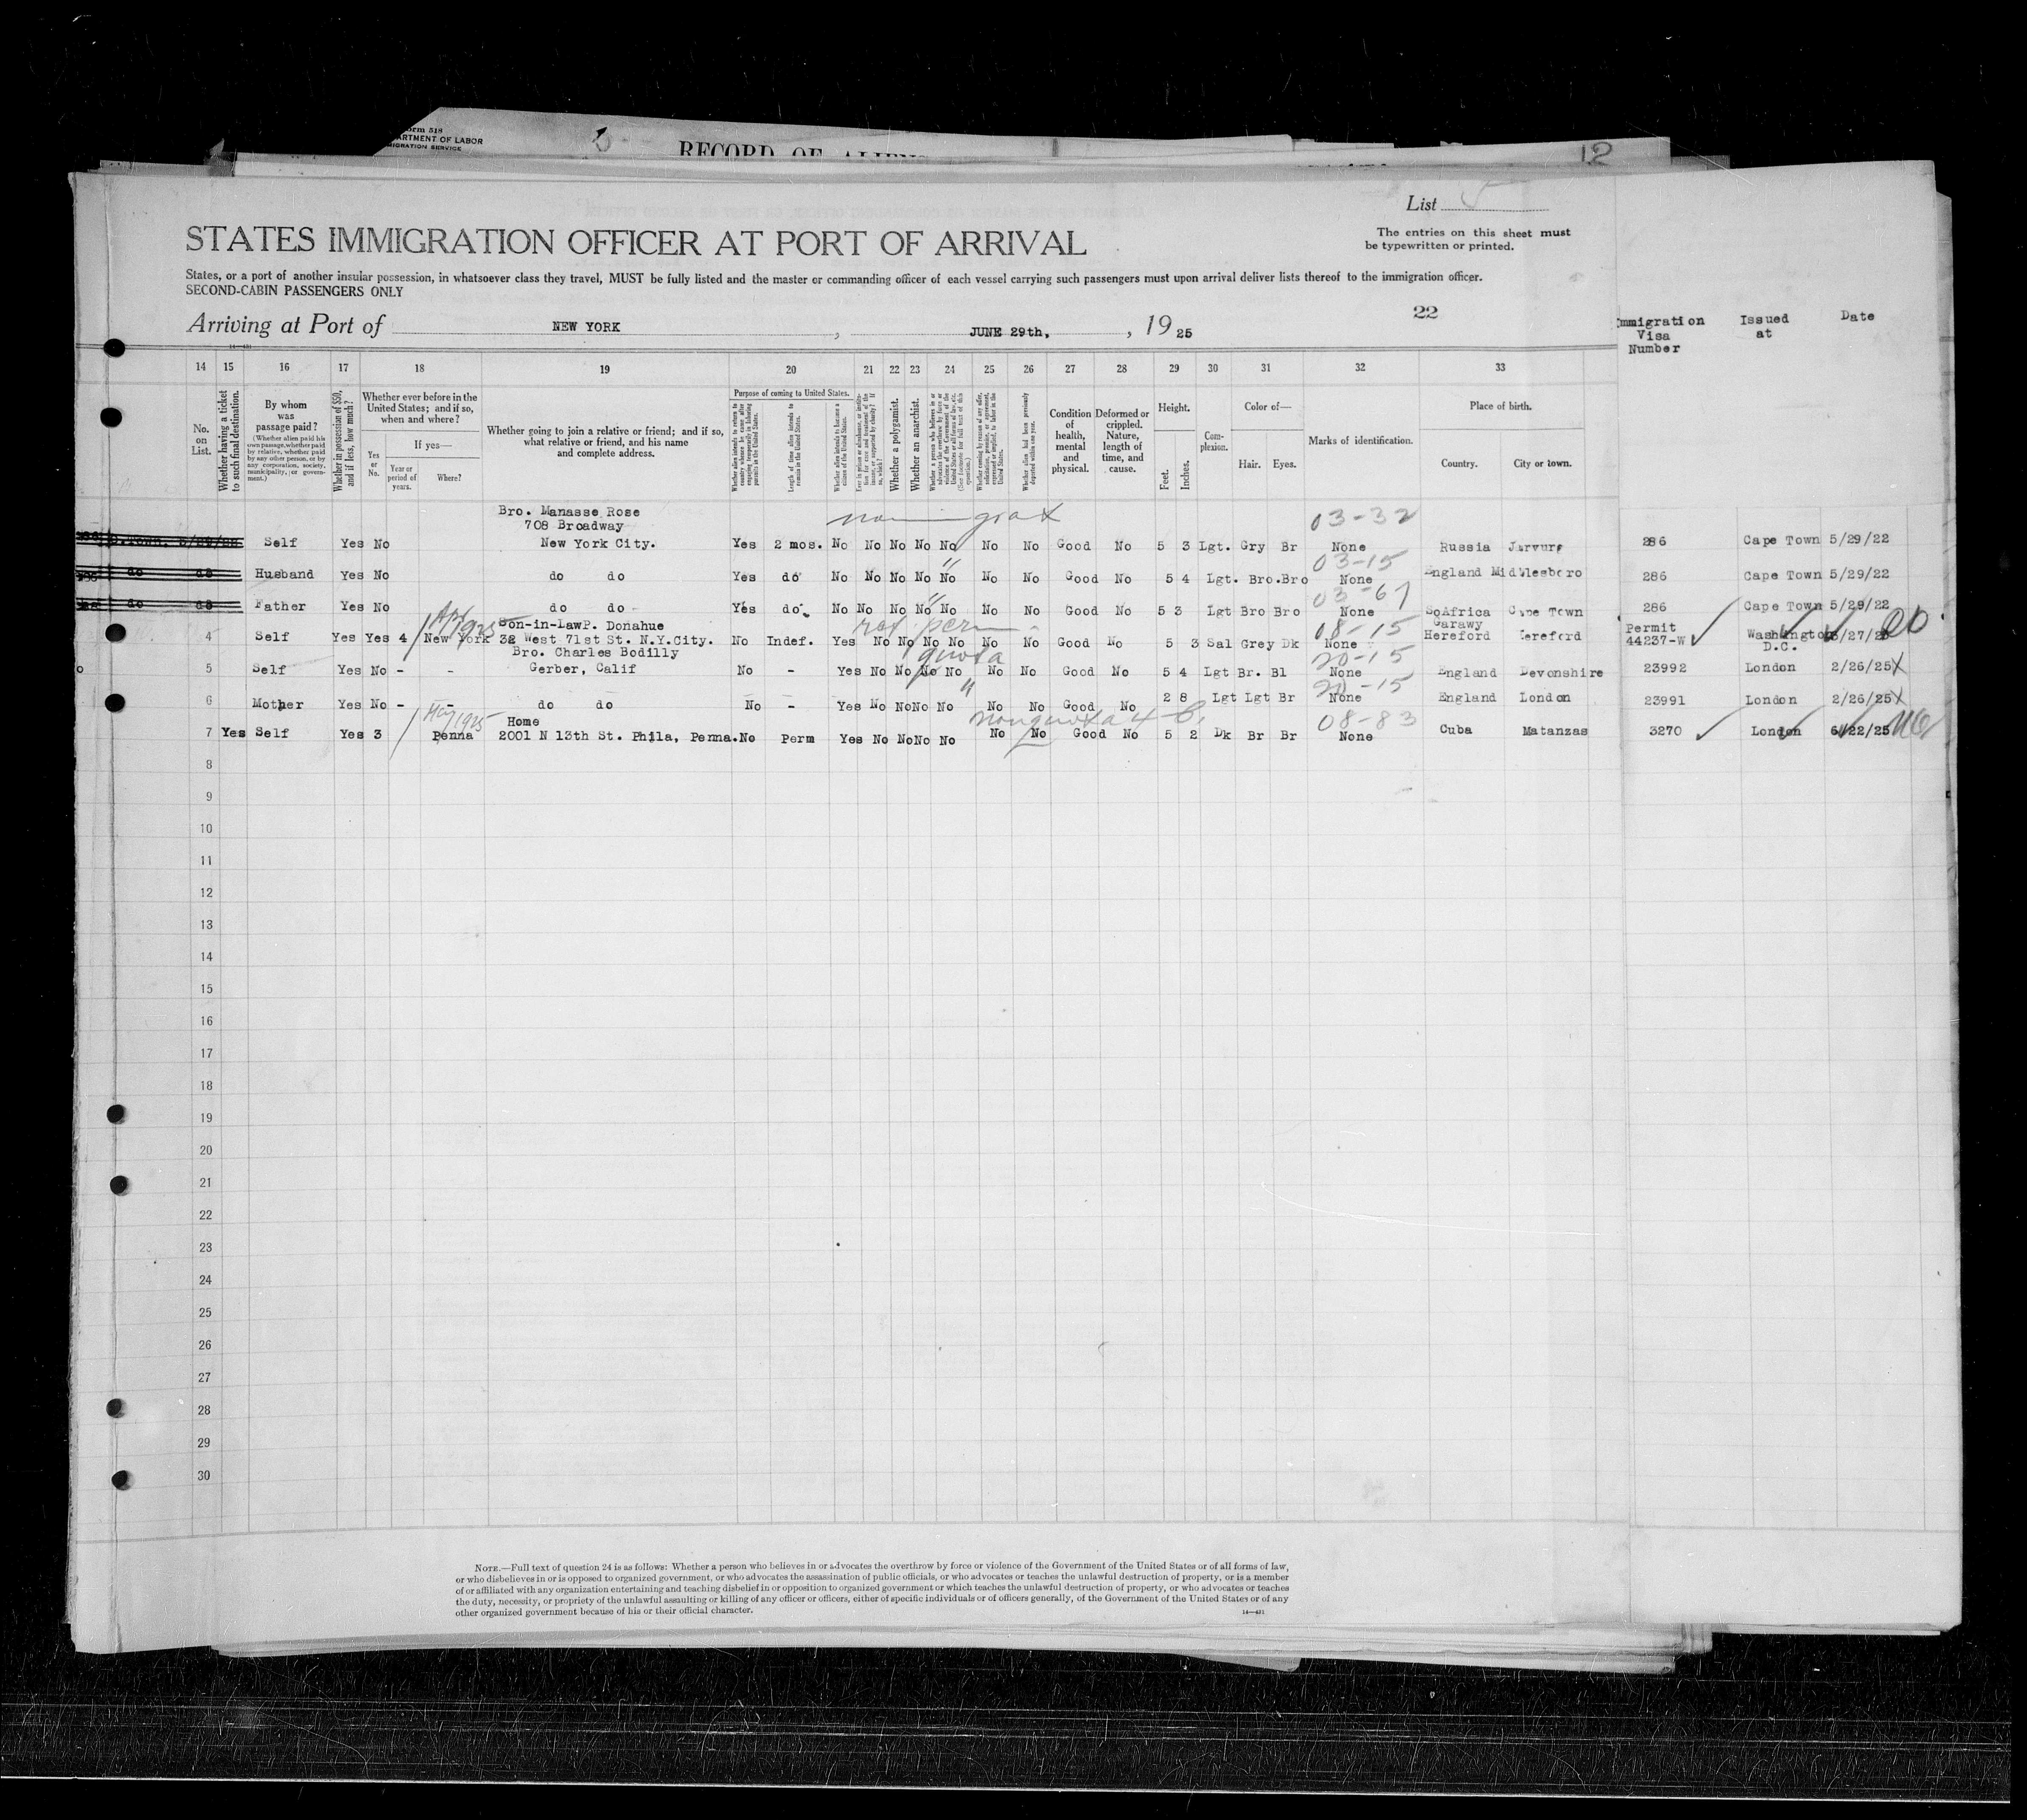 Form 518
DEPARTMENT OF LABOR
IMMIGRATION SERVICE
RECORD OF ALIENS
12
List
The entries on this sheet must
be typewritten or printed.
STATES IMMIGRATION OFFICER AT PORT OF ARRIVAL
States, or a port of another insular possession, in whatsoever class they travel, MUST be fully listed and the master or commanding officer of each vessel carrying such passengers must upon arrival deliver lists thereof to the immigration officer.
SECOND-CABIN PASSENGERS ONLY
22
Arriving at Port of NEW YORK , JUNE 29th, , 19 25
Immigration Visa Number Issued at Date
14—431
14 15 16 17 18 19 20 21 22 23 24 25 26 27 28 29 30 31 32 33
No. on List.
Whether having a ticket to such final destination.
By whom was passage paid?
(Whether alien paid his own passage, whether paid by relative, whether paid by any other person, or by any corporation, society, municipality, or government.)
Whether in possession of $50, and if less, how much?
Whether ever before in the United States; and if so, when and where?
Yes or No.
If yes—
Year or period of years.
Where?
Whether going to join a relative or friend; and if so, what relative or friend, and his name and complete address.
Purpose of coming to United States.
Whether alien intends to return to country whence he came after engaging temporarily in laboring pursuits in the United States.
Length of time alien intends to remain in the United States.
Whether alien intends to become a citizen of the United States.
Whether a polygamist.
Whether an anarchist.
Condition of health, mental and physical.
Deformed or crippled. Nature, length of time, and cause.
Height.
Feet. Inches.
Complexion.
Color of—
Hair. Eyes.
Marks of identification.
Place of birth.
Country. City or town.
Bro. Manasse Rose
708 Broadway
03-32
Self Yes No New York City. Yes 2 mos. No No No No No No No Good No 5 3 Lgt. Gry Br None Russia 286 Cape Town 5/29/22
03-15
do do Husband Yes No do do Yes do No No No No No No No Good No 5 4 Lgt. Bro. Bro None England Middlesboro 286 Cape Town 5/29/22
03-67
do do Father Yes No do do Yes do No No No No No No No Good No 5 3 Lgt Bro Bro None SoAfrica Cape Town 286 Cape Town 5/29/22
Son-in-LawP. Donahue ret. perm 08-15 Garawy Permit
4 Self Yes Yes 4 New York 32 West 71st St. N.Y.City. No Indef. Yes No No No No No No Good No 5 3 Sal Grey Dk None Hereford Hereford 44237-W Washington D.C.
Bro. Charles Bodilly quota 20-15
5 Self Yes No - - Gerber, Calif No - Yes No No No No No No Good No 5 4 Lgt Br. Bl None England Devonshire 23992 London 2/26/25
20-15
6 Mother Yes No - - do do No - Yes No No No No No No Good No 2 8 Lgt Lgt Br None England London 23991 London 2/26/25
May 1925 Home nonquota 4-B. 08-83
7 Yes Self Yes 3 Penna 2001 N 13th St. Phila, Penna. No Perm Yes No No No No No No Good No 5 2 Dk Br Br None Cuba Matanzas 3270 London 6/22/25
8
9
10
11
12
13
14
15
16
17
18
19
20
21
22
23
24
25
26
27
28
29
30
NOTE.—Full text of question 24 is as follows: Whether a person who believes in or advocates the overthrow by force or violence of the Government of the United States or of all forms of law,
or who disbelieves in or is opposed to organized government, or who advocates the assassination of public officials, or who advocates or teaches the unlawful destruction of property, or is a member
of or affiliated with any organization entertaining and teaching disbelief in or opposition to organized government or which teaches the unlawful destruction of property, or who advocates or teaches
the duty, necessity, or propriety of the unlawful assaulting or killing of any officer or officers, either of specific individuals or of officers generally, of the Government of the United States or of any
other organized government because of his or their official character.
14—431